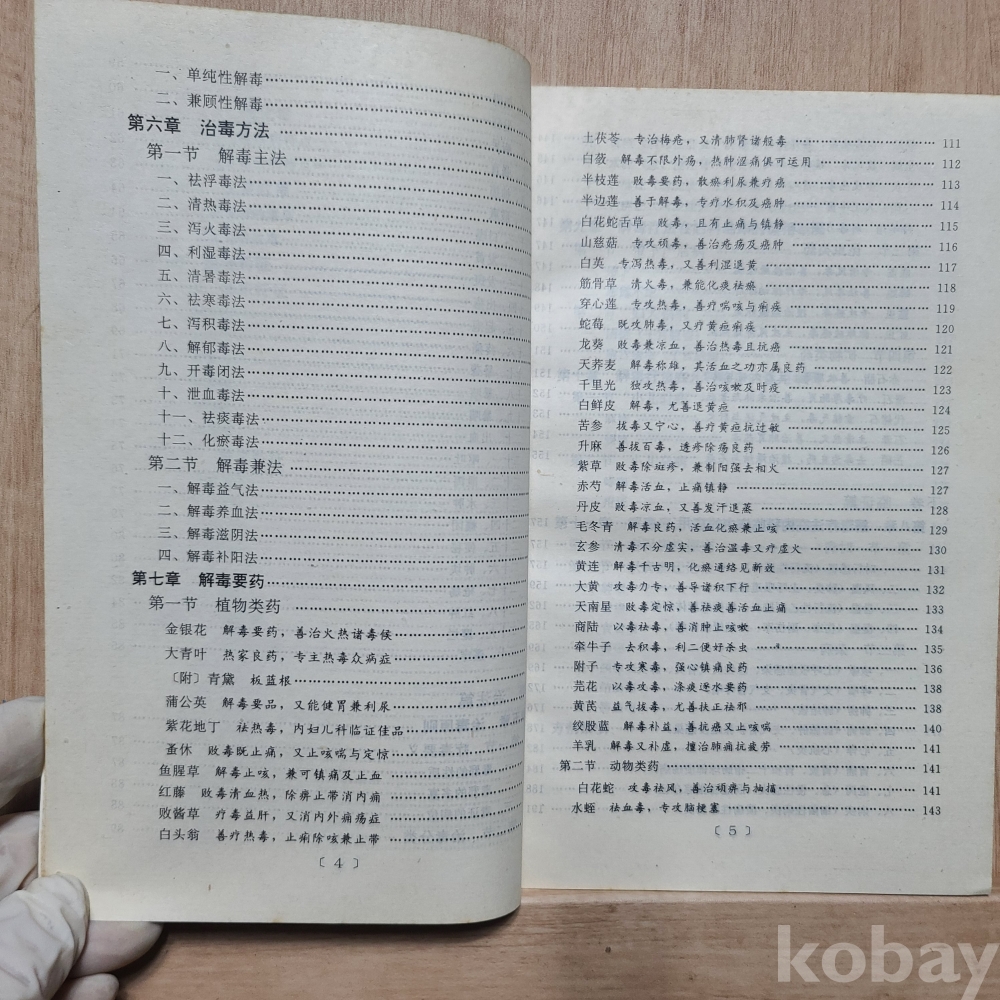 一、单纯性解毒
二、兼顾性解毒
第六章 治毒方法
第一节 解毒主法
一、祛浮毒法
二、清热毒法
三、泻火毒法
四、利湿毒法
五、清暑毒法
六、祛寒毒法
七、泻积毒法
八、解郁毒法
九、开毒闭法
十、泄血毒法
十一、祛痰毒法
十二、化瘀毒法
第二节 解毒兼法
一、解毒益气法
二、解毒养血法
三、解毒滋阴法
四、解毒补阳法
第七章 解毒要药
第一节 植物类药
金银花 解毒要药，善治火热诸毒候
大青叶 热家良药，专主热毒众病症
〔附〕青黛 板蓝根
蒲公英 解毒要品，又能健胃兼利尿
紫花地丁 祛热毒，内妇儿科临证佳品
蚤休 败毒既止痛，又止咳喘与定惊
鱼腥草 解毒止咳，兼可镇痛及止血
红藤 败毒清血热，除痹止带消内痈
败酱草 疗毒益肝，又消内外痛疡症
白头翁 善疗热毒，止痢除咳兼止带
〔4〕
土茯苓 专治梅疮，又清肺肾诸般毒 111
白蔹 解毒不限外疡，热肿涩痛俱可运用 112
半枝莲 败毒要药，散瘀利尿兼疗癌 113
半边莲 善于解毒，专疗水积及癌肿 114
白花蛇舌草 败毒，且有止痛与镇静 115
山慈菇 专攻顽毒，善治疮疡及癌肿 116
白英 专泻热毒，又善利湿退黄 117
筋骨草 清火毒，兼能化痰祛瘀 118
穿心莲 专攻热毒，善疗喘咳与痢疾 119
蛇莓 既攻肺毒，又疗黄疸痢疾 120
龙葵 败毒兼凉血，善治热毒且抗癌 121
天荞麦 解毒称雄，其活血之功亦属良药 122
千里光 独攻热毒，善治咳嗽及时疫 123
白鲜皮 解毒，尤善退黄疸 124
苦参 拔毒又宁心，善疗黄疸抗过敏 125
升麻 善拔百毒，透疹除疡良药 126
紫草 败毒除斑疹，兼制阳强去相火 127
赤芍 解毒活血，止痛镇静 127
丹皮 败毒凉血，又善发汗退蒸 128
毛冬青 解毒良药，活血化瘀兼止咳 129
玄参 清毒不分虚实，善治温毒又疗虚火 130
黄连 解毒千古明，化瘀通络见新效 131
大黄 攻毒力专，善导诸积下行 132
天南星 败毒定惊，善祛痰善活血止痛 133
商陆 以毒祛毒，善消肿止咳嗽 134
牵牛子 去积毒，利二便好杀虫 135
附子 专攻寒毒，强心镇痛良药 136
芫花 以毒攻毒，涤痰逐水要药 138
黄芪 益气拔毒，尤善扶正祛邪 138
绞股蓝 解毒补益，善抗癌又止咳喘 140
羊乳 解毒又补虚，擅治肺痈抗疲劳 141
第二节 动物类药 141
白花蛇 攻毒祛风，善治顽痹与抽搐 141
水蛭 祛血毒，专攻脑梗塞 143
〔5〕
kobay